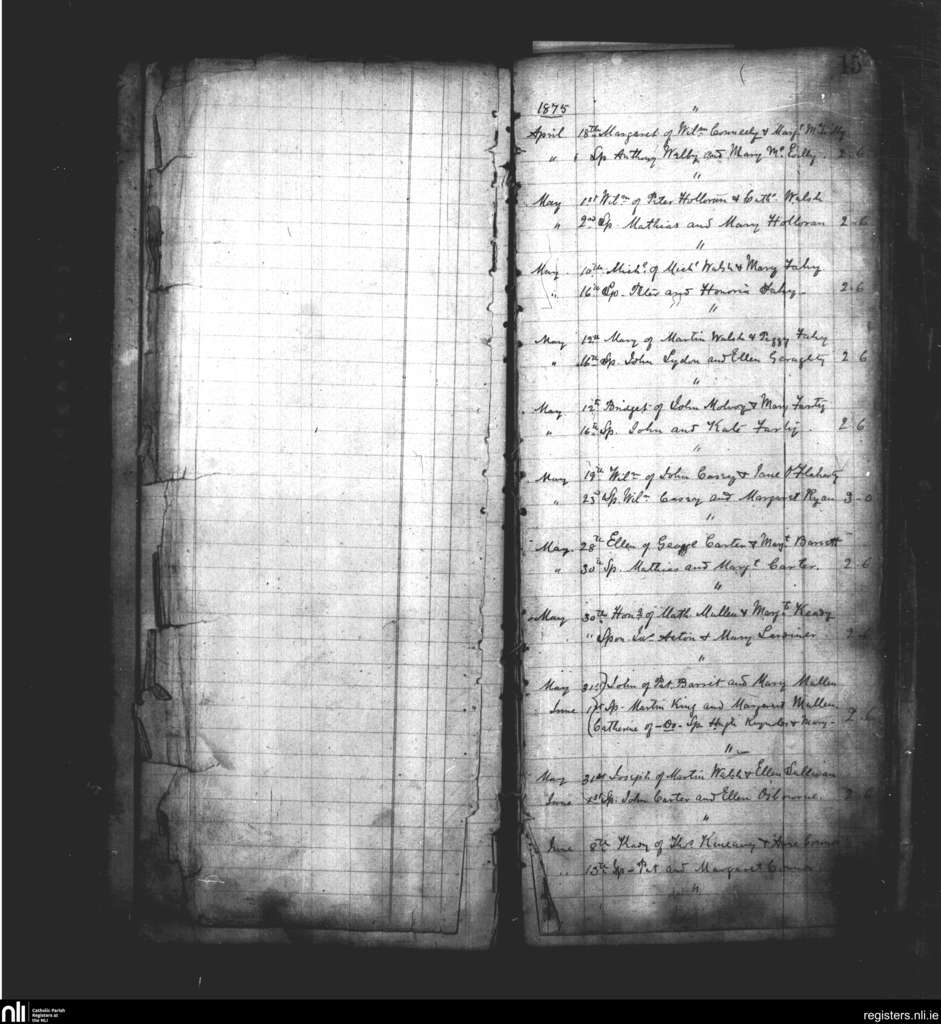 15
1875
"
April 18th Margaret of Wilm Conneely & Margt
" Sp Anthony Walby and Mary Mc 2-6
"
May 1st Wilm of Peter Holloran & Cath. Walsh
" 2nd Sp. Mathias and Mary Holloran 2-6
"
May 10th Michl. of Michl Walsh & Mary Fahy
" 16th Sp- Peter and Honoria Fahy- 2-6
"
May 12th Mary of Martin Walsh & Peggy Fahy
" 16th Sp. John Lydon and Ellen Geraghty 2 6
"
May 12th Bridget of John Molroy & Mary
" 16th Sp. John and Kate 2-6
"
May 19th Wilm of John Casey & Jane O'Flaherty
" 23d Sp. Wilm Casey and Margaret Ryan 3-0
"
May. 28th Ellen of George Carter & Margt Barrett
" 30th Sp. Mathias and Margt Carter. 2-6
"
May 30th Honr of Math Mullen & Margt Keady
" Spon. Acton & Mary 2-6
"
May 31st John of Pat Barret and Mary Mullen
June 1st Sp- Martin King and Margaret Mullen
(Catherine of -Do- Sp Hugh & Mary- 2 6
"
May 31st Joseph of Martin Walsh & Ellen Sullivan
June 1st Sp. John Carter and Ellen Osbourne. 2 6
"
June 8th of Thos & Anne
" 13th Sp- Pat and Margaret
"
nli
Catholic Parish
Registers at
the NLI
registers.nli.ie